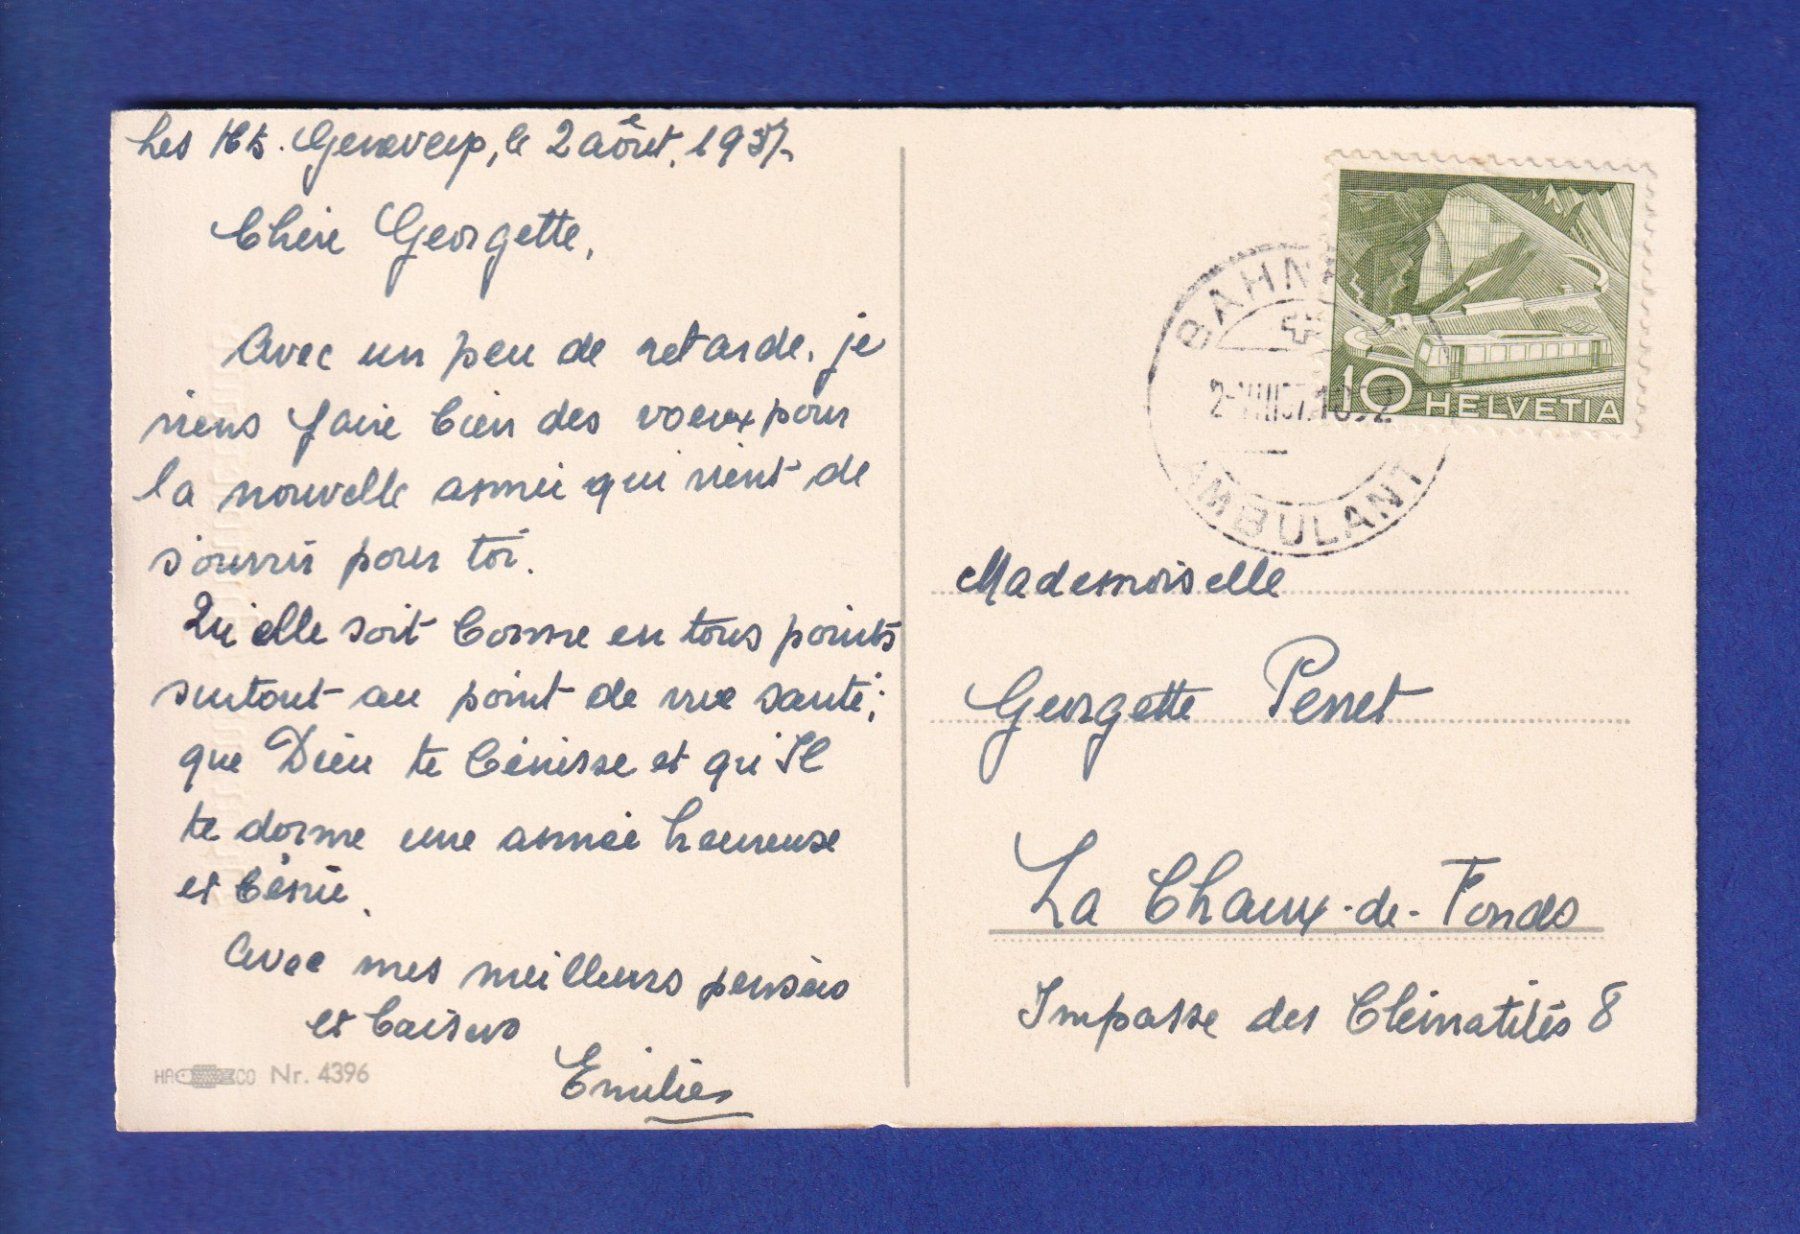 Les Hts. Geneveys, le 2 août, 1957.
Chère Georgette,
Avec un peu de retarde, je
viens faire bien des voeux pour
la nouvelle année qui vient de
s'ouvrir pour toi.
Qu'elle soit bonne en tous points
surtout au point de vue santé;
que Dieu te bénisse et qu'Il
te donne une année heureuse
et bénie.
Avec mes meilleurs pensées
et baisers
Emilie
HACO Nr. 4396
10 HELVETIA
BAHN
2-VIII57.10
AMBULANT
Mademoiselle
Georgette Perret
La Chaux-de-Fonds
Impasse des Clématites 8